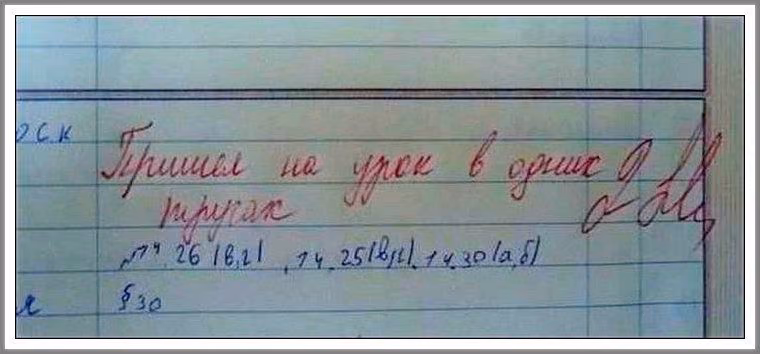 оск
Пришел на урок в одних
трусах
№14.26(в,г), 14.25(в,г), 14.30(а,б)
я §30